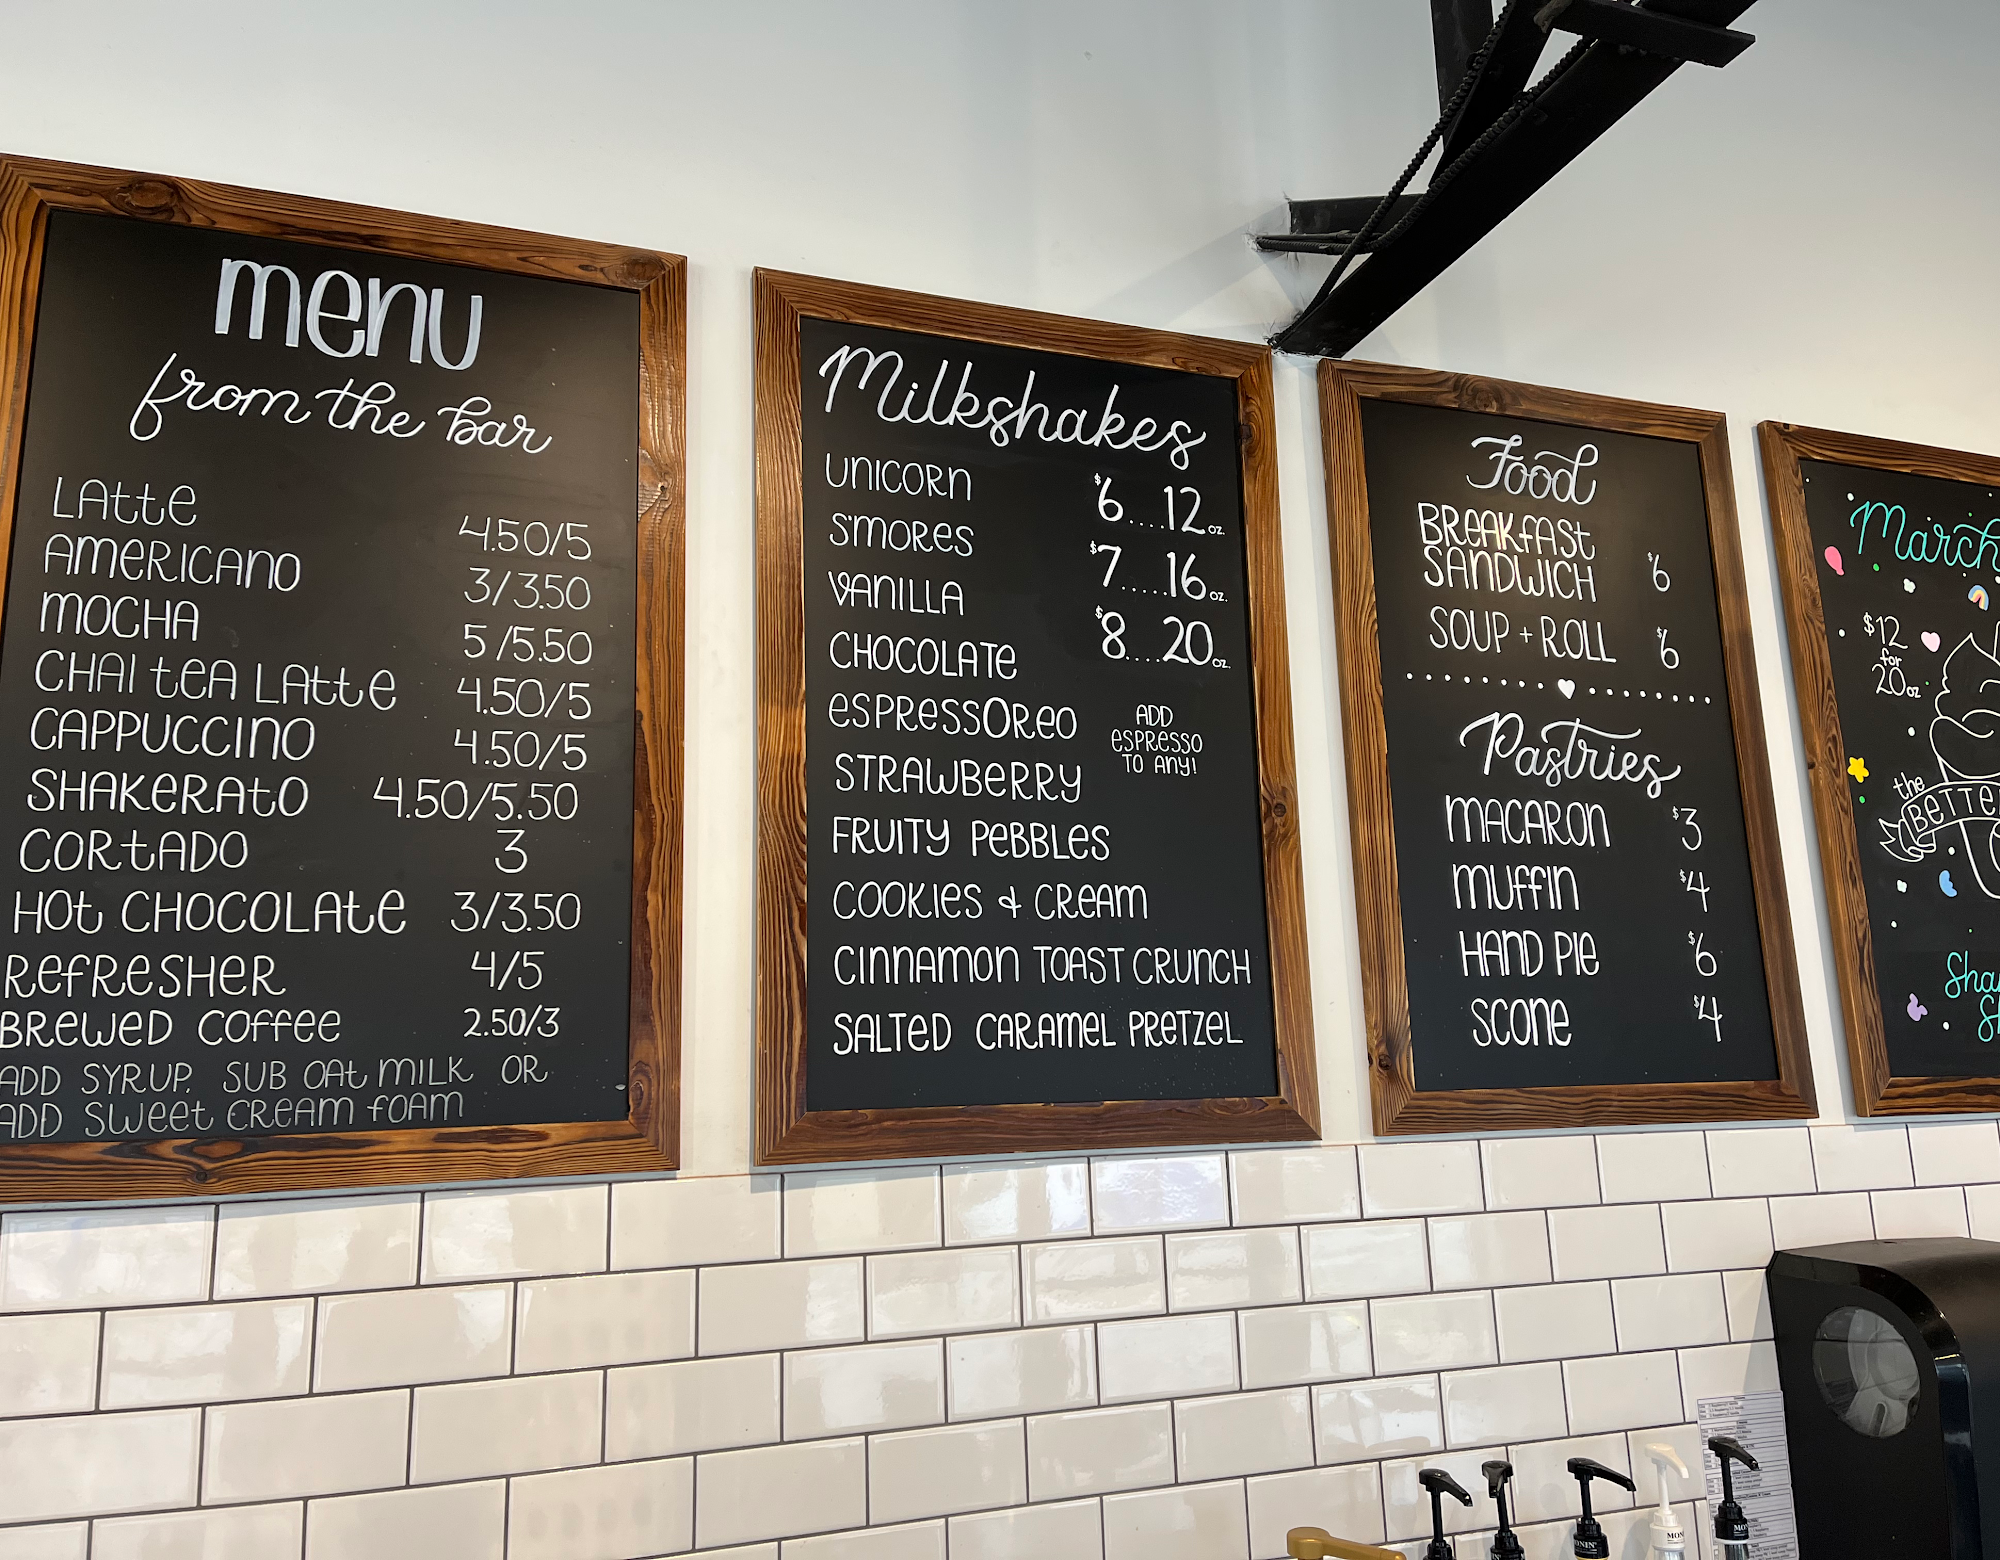 menu
from the bar
LAtte 4.50/5
AMERICANO 3/3.50
MOCHA 5/5.50
CHAI teA LAtte 4.50/5
CAPPUCCINO 4.50/5
SHAKERAtO 4.50/5.50
CORtADO 3
HOt CHOCOLAtE 3/3.50
REFRESHER 4/5
BREWED COFFEE 2.50/3
ADD SYRUP. SUB OAt MILK OR
ADD SWEEt CREAM FOAM
Milkshakes
UNICORN
S'MORES
VANILLA
CHOCOLATE
ESPRESSOREO
STRAWBERRY
FRUITY PEBBLES
COOKIES & CREAM
CINNAMON TOAST CRUNCH
SALTED CARAMEL PRETZEL
$6....12oz.
$7.....16oz.
$8....20oz.
ADD
ESPRESSO
TO ANY!
Food
BREAKFAST
SANDWICH $6
SOUP + ROLL $6
Pastries
MACARON $3
MUFFIN $4
HAND PIE $6
SCONE $4
March
$12
for
20oz
the
BETTE
Sha